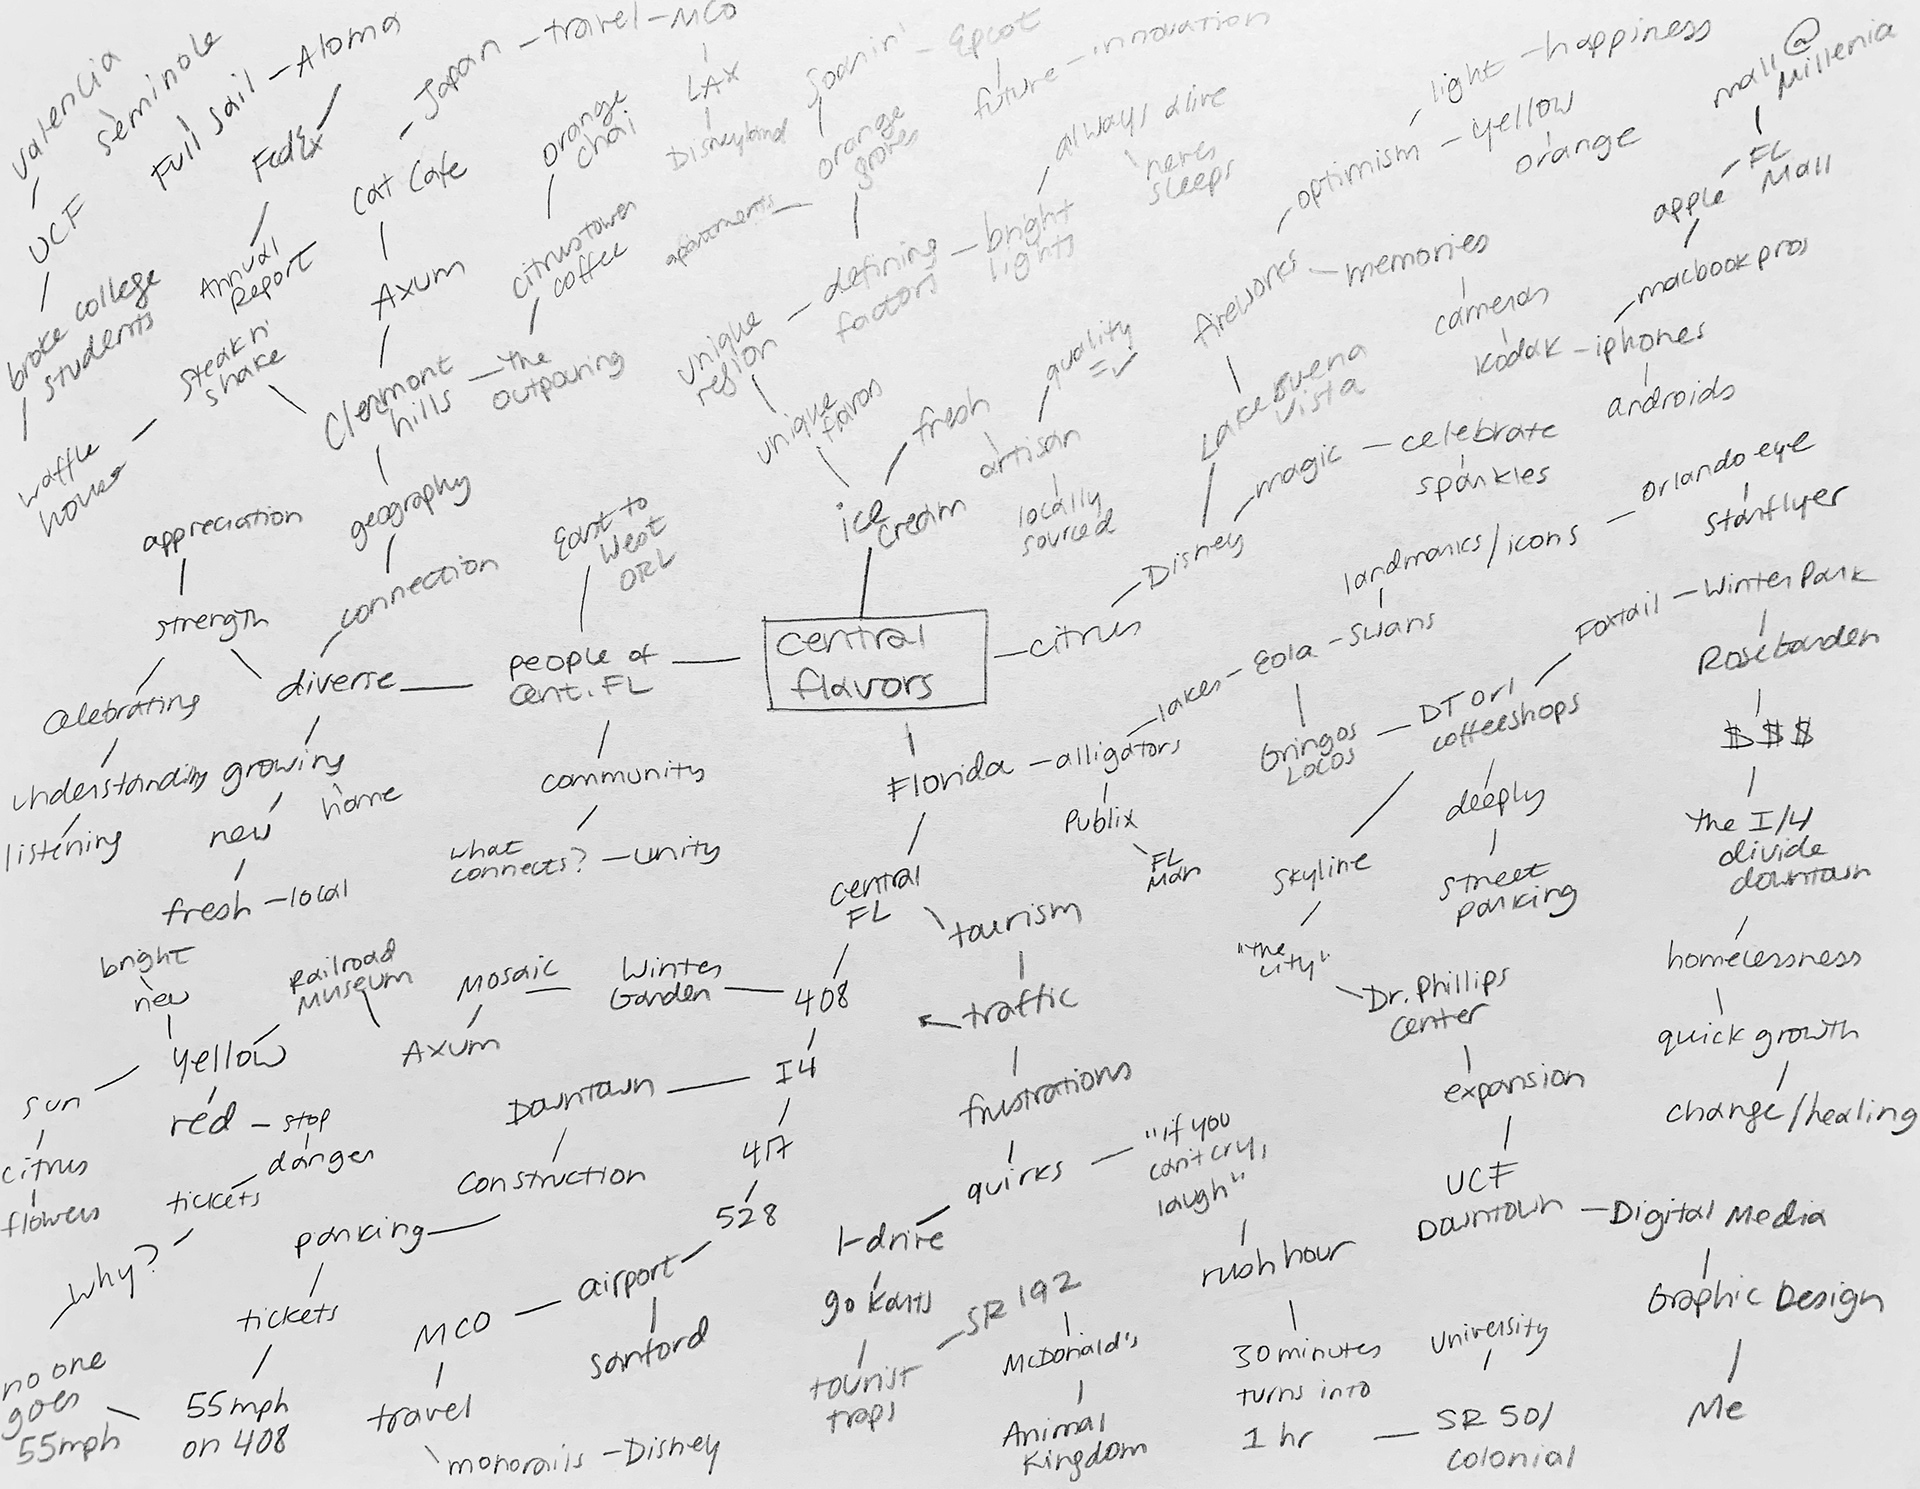 Valencia
Seminole
Full Sail - Aloma
FedEx
Japan - travel - MCO
LAX
Disneyland
Soarin' - Epcot
future - innovation
light - happiness
mall @
Millenia
UCF
Annual
Report
Cat Cafe
orange
chai
orange
groves
always alive
never
sleeps
optimism - yellow
orange
apple - FL
Mall
broke college
students
steak n'
shake
Axum
citrustown
coffee
apartments
unique
region
defining
factors
bright
lights
fireworks - memories
cameras
kodak - iphones
androids
macbook pros
waffle
house
Clermont
hills - the
outpouring
unique
flavors
fresh
quality
= ✓
Lake Buena
Vista
magic - celebrate
sparkles
orlando eye
starflyer
appreciation
geography
connection
East to
West
ORL
ice
cream
artisan
locally
sourced
Disney
landmarks/icons
strength
diverse
people of
cent. FL
central
flavors
citrus
lakes - Eola - Swans
Foxtail - Winter Park
Rose Garden
$$$
celebrating
understanding
listening
growing
home
new
fresh - local
community
what
connects? - unity
Florida - alligators
Publix
FL
Man
Gringos
Locos
DT Orl
coffeeshops
deeply
street
parking
skyline
"the
city"
the I/4
divide
downtown
central
FL
tourism
traffic
frustrations
quirks - "if you
can't cry,
laugh"
Dr. Phillips
Center
expansion
homelessness
quick growth
change/healing
bright
new
yellow
sun
citrus
flowers
red - stop
danger
tickets
why?
Railroad
Museum
Axum
Mosaic - Winter
Garden - 408
Downtown - I4
417
528
construction
parking
tickets
55mph
on 408
no one
goes
55mph
airport
Sanford
MCO
travel
monorails - Disney
I-drive
go karts
tourist
traps
SR 192
McDonald's
Animal
Kingdom
rush hour
30 minutes
turns into
1 hr
SR 50/
Colonial
University
UCF
Downtown - Digital Media
Graphic Design
Me